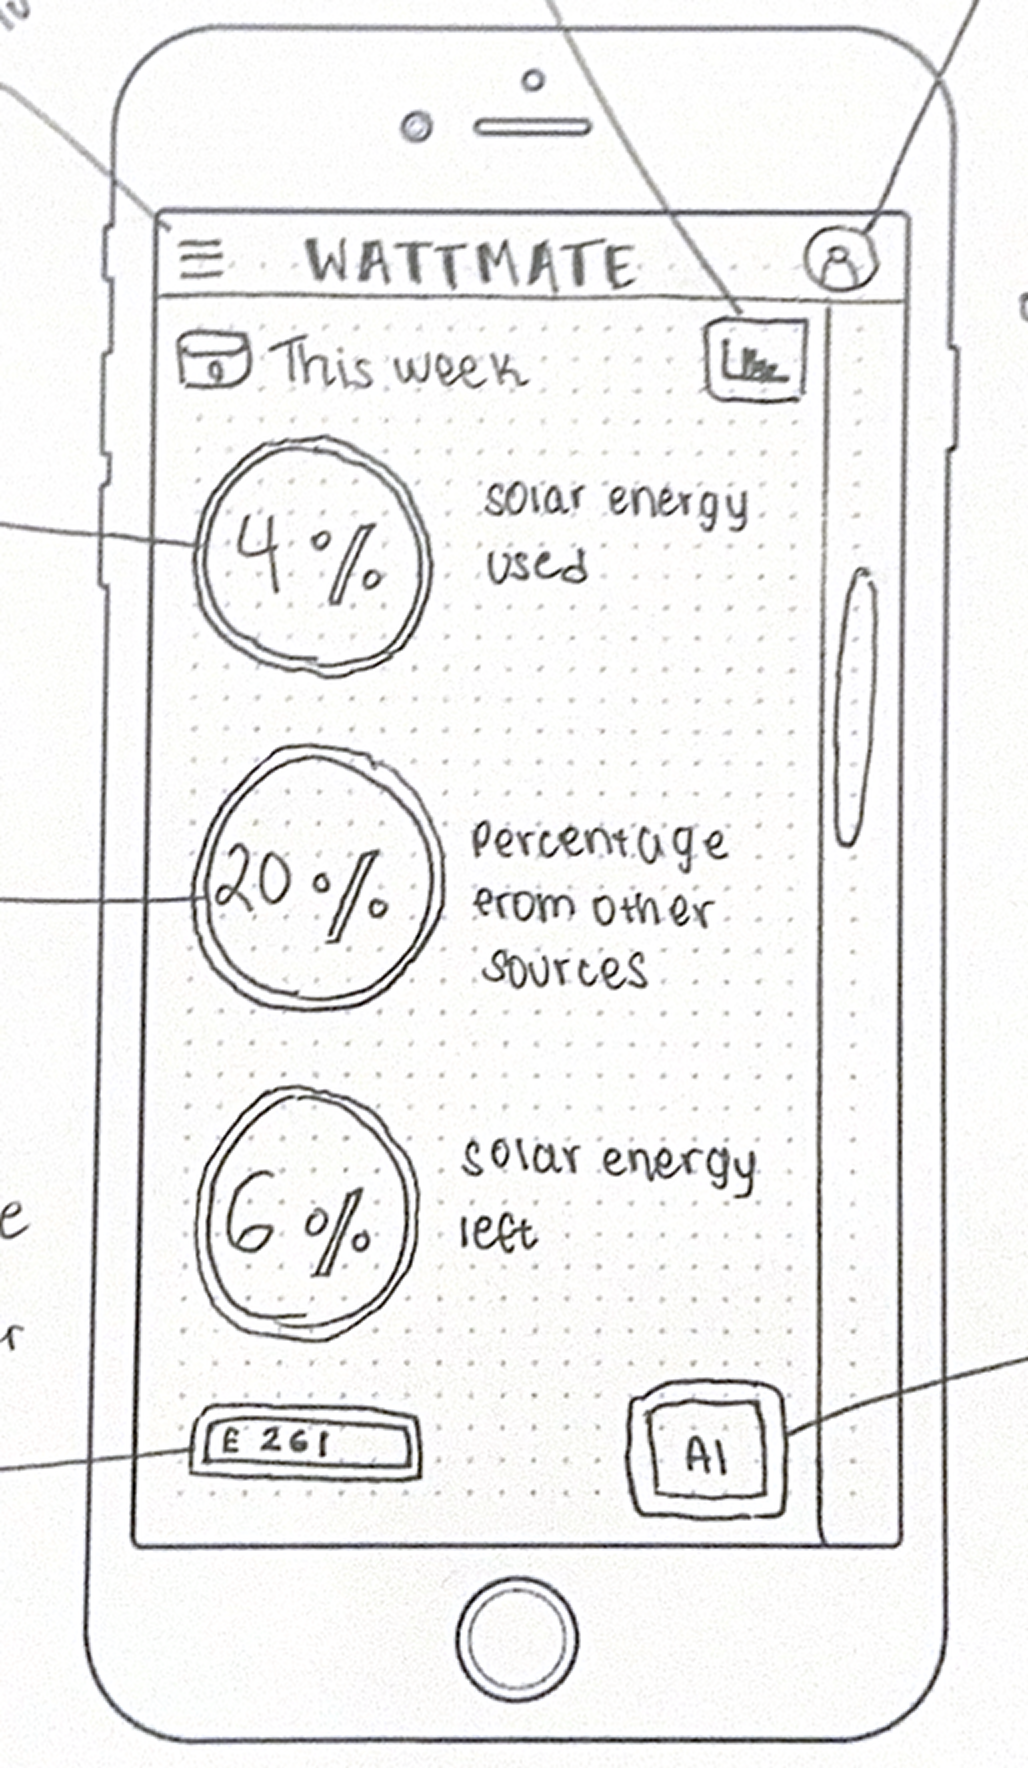 WATTMATE
This week
4%
solar energy
used
20%
percentage
erom other
sources
6%
solar energy
left
E 261
AI
e
r